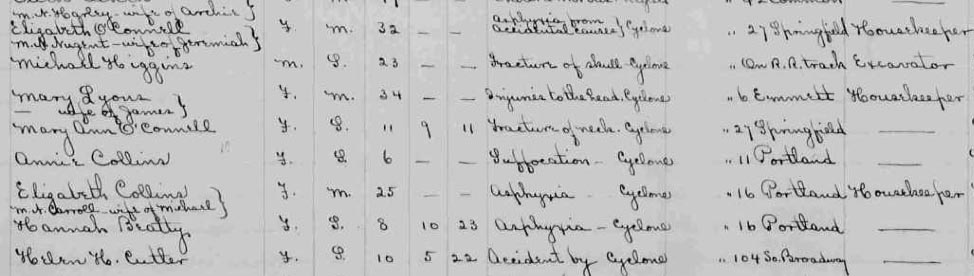 M. N. Hanley - wife of Archie }
Elizabeth O'Connell F. M. 32 — — Asphyxia from Accidental causes } Cyclone " 27 Springfield Housekeeper
M. N. Nugent - wife of Jeremiah }
Michael Higgins M. S. 23 — — Fracture of skull - Cyclone " On R.R. track Excavator
Mary Lyons F. M. 34 — — Injuries to the head. Cyclone " 6 Emmett Housekeeper
— wife of James }
Mary Ann O'Connell F. S. 11 9 11 Fracture of neck. Cyclone " 27 Springfield —
Annie Collins F. S. 6 — — Suffocation - Cyclone " 11 Portland —
Elizabeth Collins F. M. 25 — — Asphyxia - Cyclone " 16 Portland Housekeeper
M. N. Carroll - wife of Michael }
Hannah Beatty F. S. 8 10 23 Asphyxia - Cyclone " 16 Portland —
Helen H. Cutler F. S. 10 5 22 Accident by Cyclone " 104 So. Broadway —